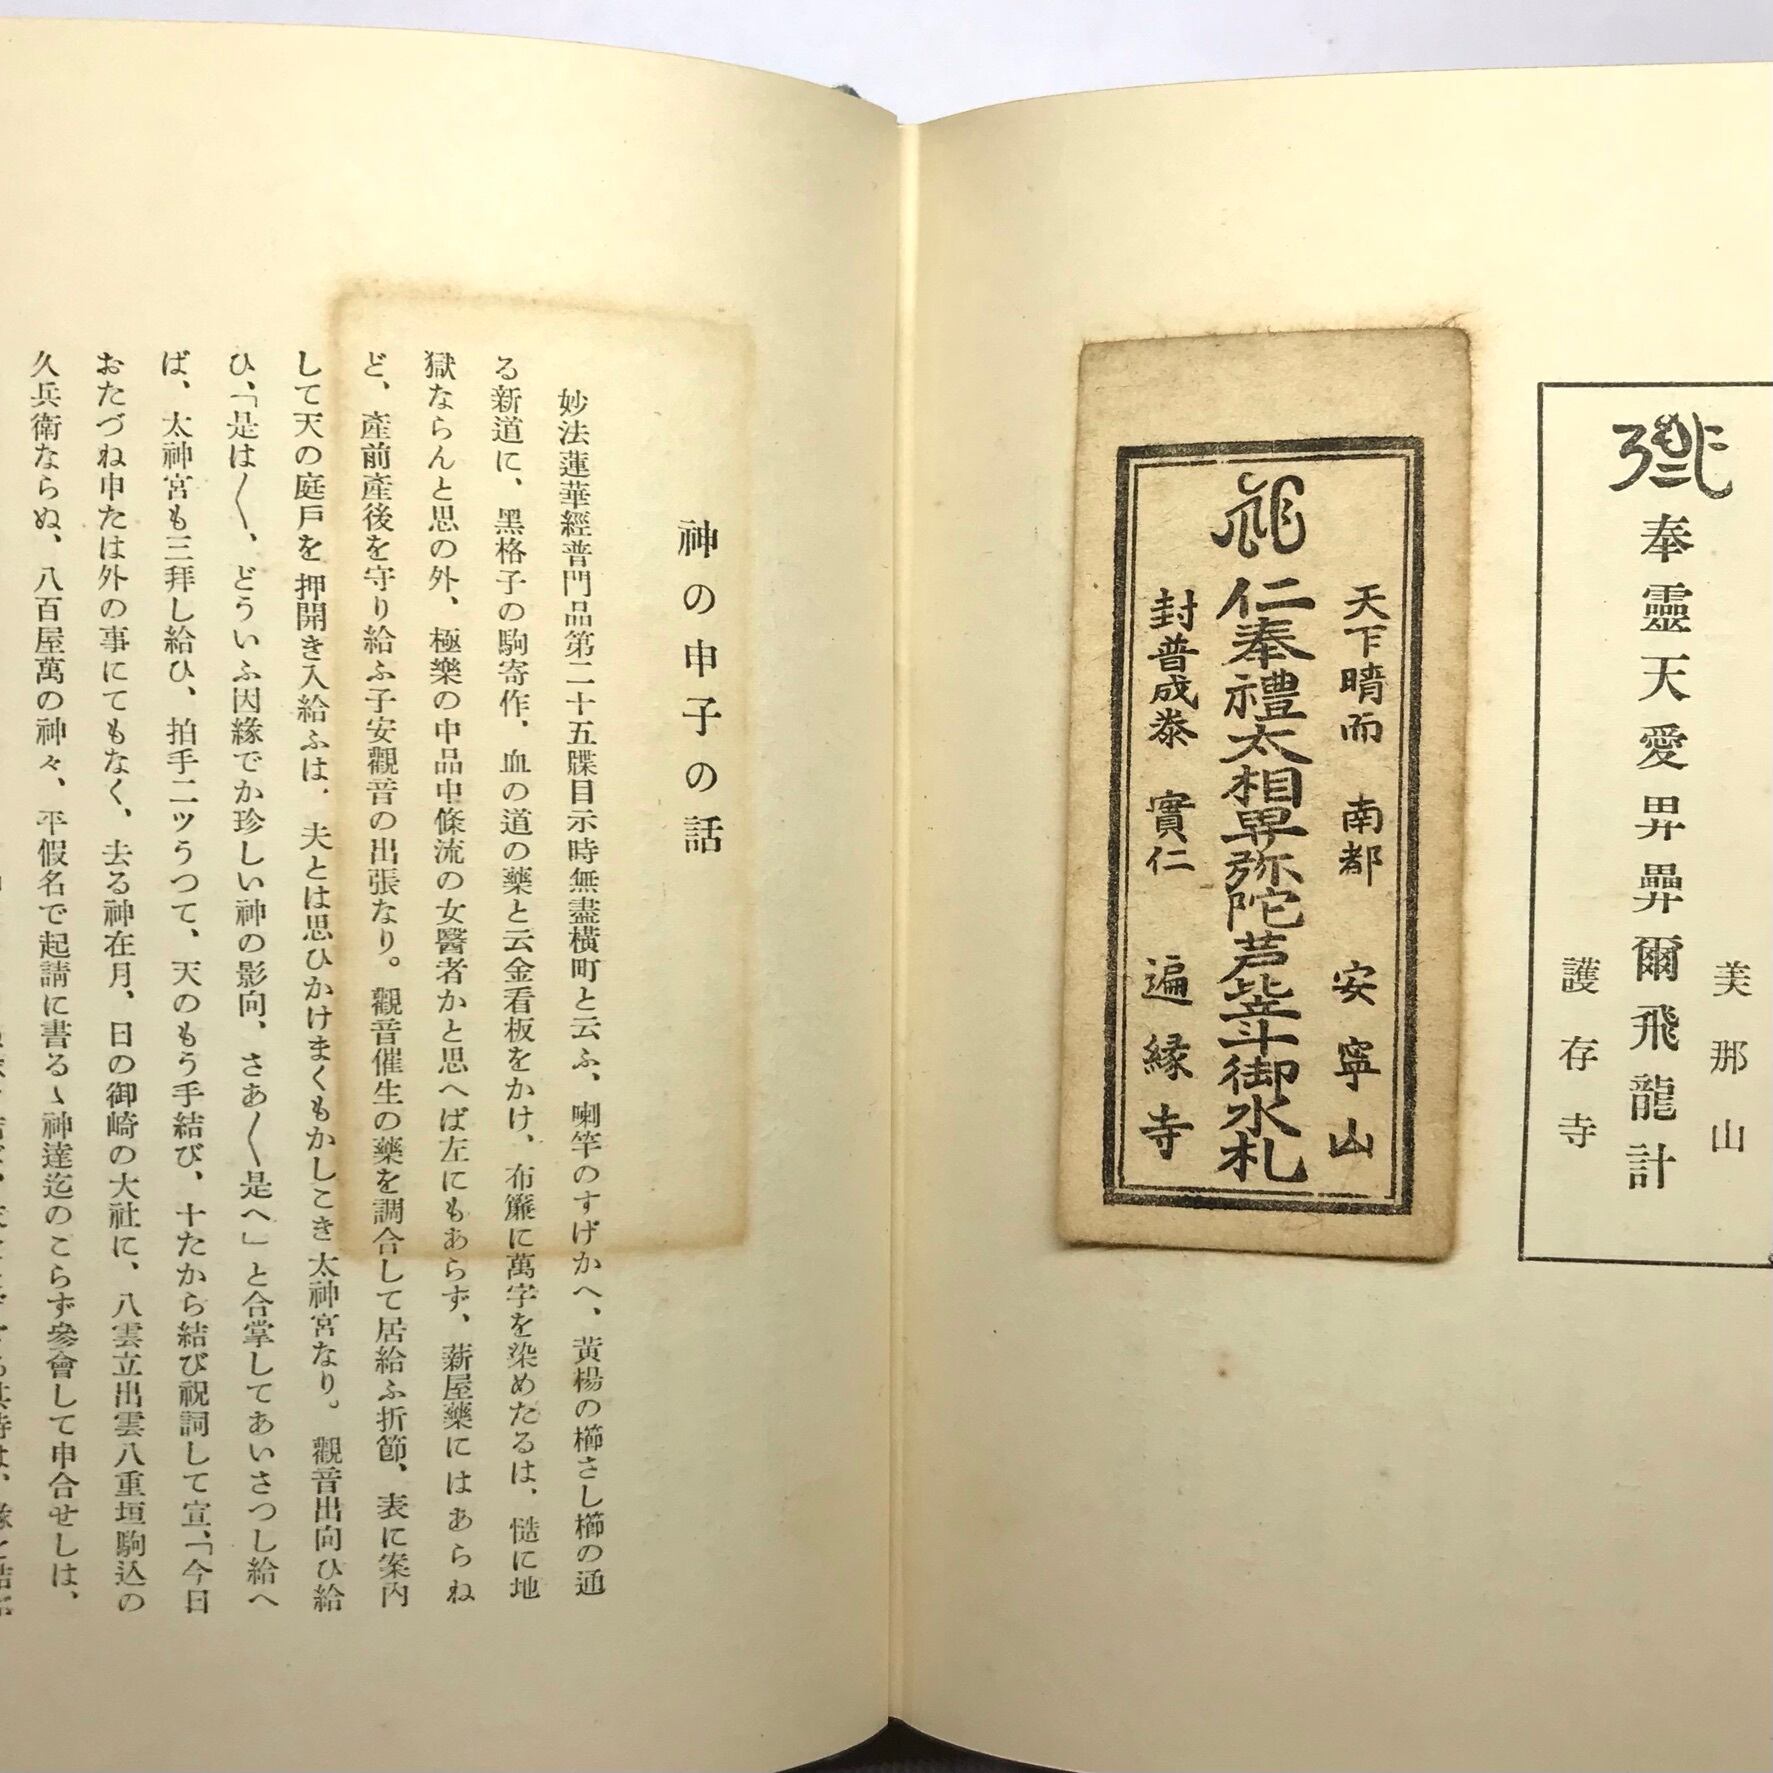 美那山
奉靈天愛畀畀爾飛龍計
護存寺
天下晴而 南都 安寧山
仁奉禮太相卑弥陀芦毕斗御水札
封普成桊 實仁 遍縁寺
神の申子の話
妙法蓮華經普門品第二十五牒目示時無盡横町と云ふ、喇竿のすげかへ、黄楊の櫛さし櫛の通
る新道に、黑格子の駒寄作、血の道の藥と云金看板をかけ、布簾に萬字を染めたるは、慥に地
獄ならんと思の外、極樂の中品中條流の女醫者かと思へば左にもあらず、薪屋藥にはあらね
ど、產前產後を守り給ふ子安觀音の出張なり。觀音催生の藥を調合して居給ふ折節、表に案内
して天の庭戸を押開き入給ふは、夫とは思ひかけまくもかしこき太神宮なり。觀音出向ひ給
ひ、「是は〱、どういふ因緣でか珍しい神の影向、さあ〱是へ」と合掌してあいさつし給へ
ば、太神宮も三拜し給ひ、拍手二ツうつて、天のもう手結び、十たから結び祝詞して宣、「今日
おたづね申たは外の事にてもなく、去る神在月、日の御崎の大社に、八雲立出雲八重垣駒込の
久兵衛ならぬ、八百屋萬の神々、平假名で起請に書る〻神達迄のこらず參會して申合せしは、